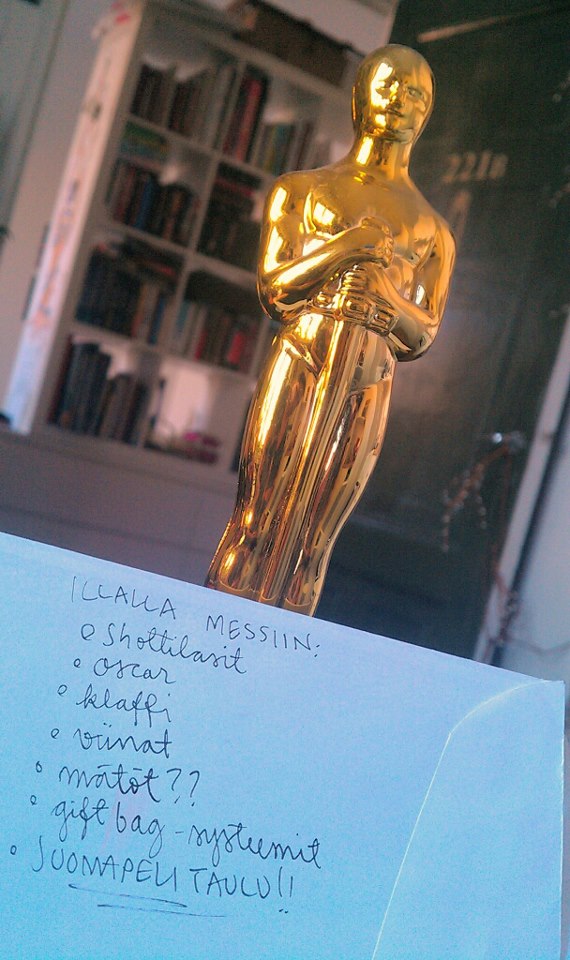 221B
ILLALLA MESSIIN:
shottilasit
oscar
klaffi
viinat
mätöt??
gift bag -systeemit
JUOMAPELI TAULU!!